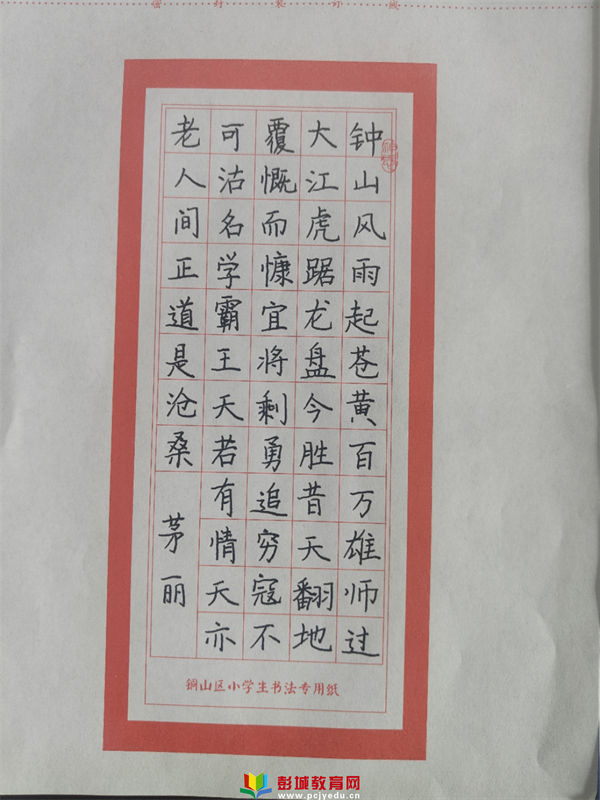 密 封 装 订 线
钟山风雨起苍黄百万雄师过
大江虎踞龙盘今胜昔天翻地
覆慨而慷宜将剩勇追穷寇不
可沽名学霸王天若有情天亦
老人间正道是沧桑
茅丽
铜山区小学生书法专用纸
彭城教育网
www.pcjyedu.cn